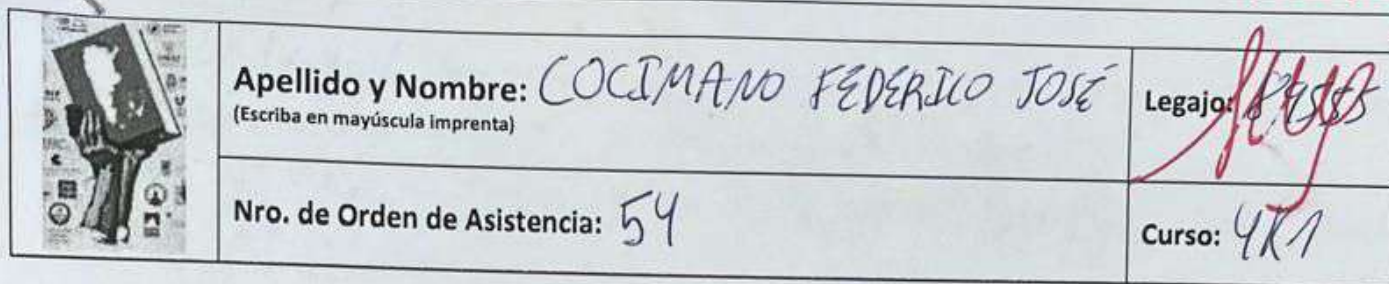 Apellido y Nombre: COCIMANO FEDERICO JOSÉ
(Escriba en mayúscula imprenta)
Legajo:
Nro. de Orden de Asistencia: 54
Curso: 4K1